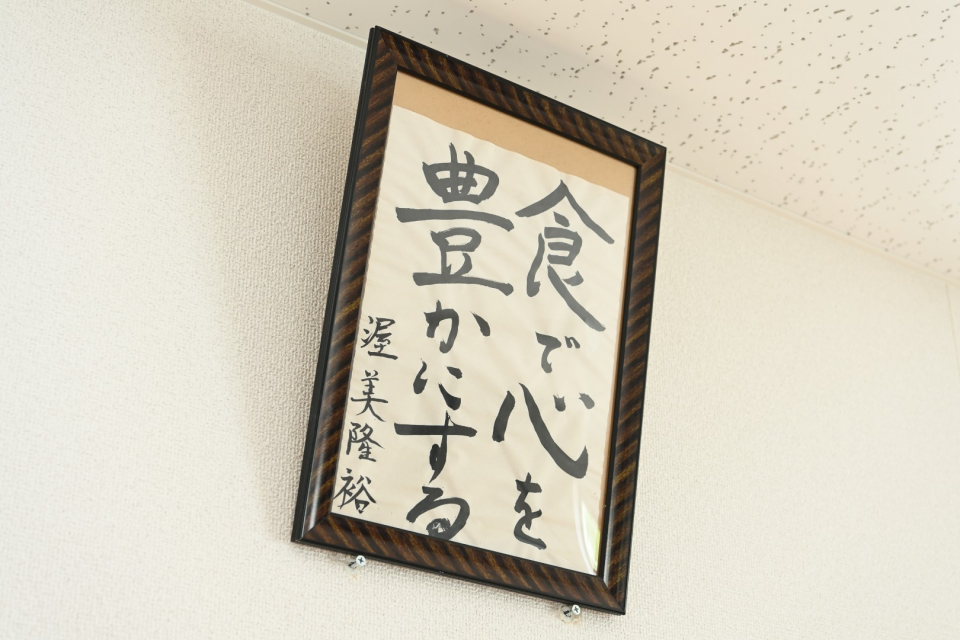 食で心を
豊かにする
渥美隆裕